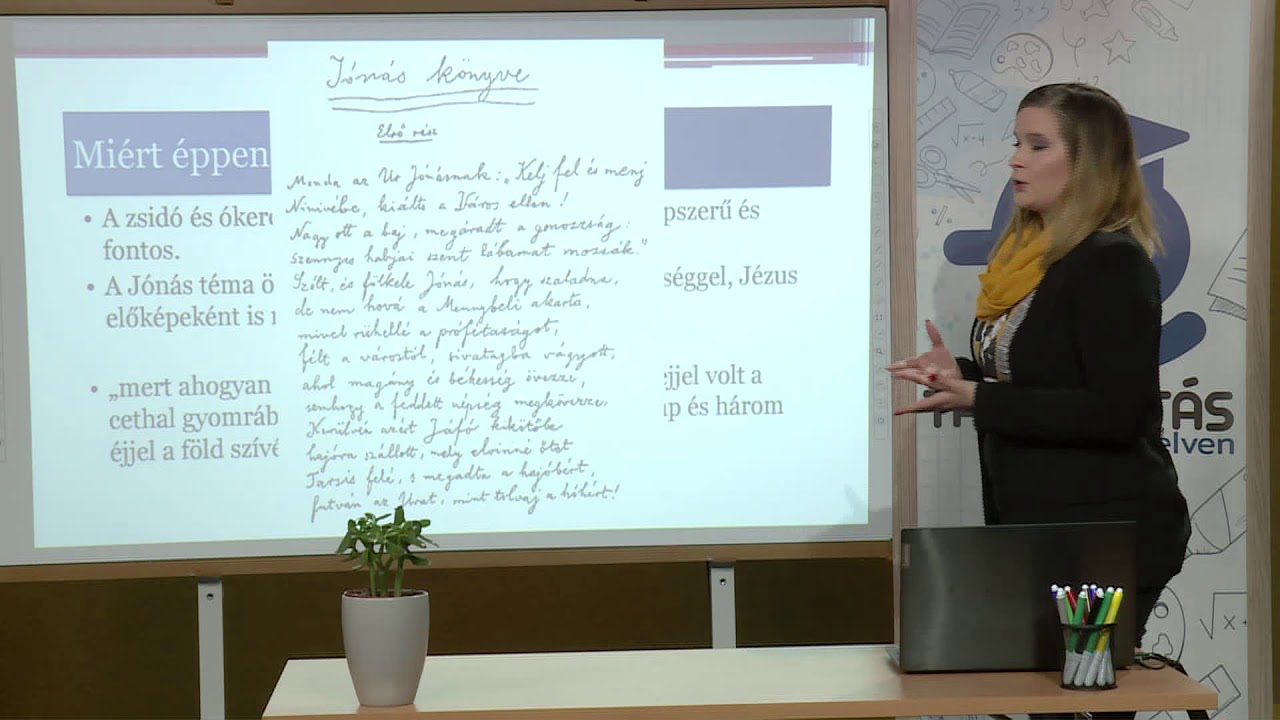 Miért éppen
• A zsidó és óker
fontos.
pszerű és
• A Jónás téma ö
előképeként is
séggel, Jézus
• „mert ahogyan
cethal gyomráb
éjjel a föld szívé
éjjel volt a
ap és három
Jónás könyve
Első rész
Monda az Ur Jónásnak: „Kelj fel és menj
Ninivébe, kiálts a Város ellen!
Nagy ott a baj, megáradt a gonoszság:
szennyes habjai szent lábamat mossák."
Szólt, és fölkele Jónás, hogy szaladna,
de nem hová a Mennybeli akarta,
mivel rühellé a prófétaságot,
félt a várostól, sivatagba vágyott,
ahol magány és békesség övezze,
semhogy a feddett népség megkövezze.
Kerülvén azért Jáfó kikötőbe
hajóra szállott, mely elvinné őtet
Tarsis felé, s megadta a hajóbért,
futván az Urat, mint tolvaj a hóhért!
TÁS
elven
3×3
√x-4
%
√x